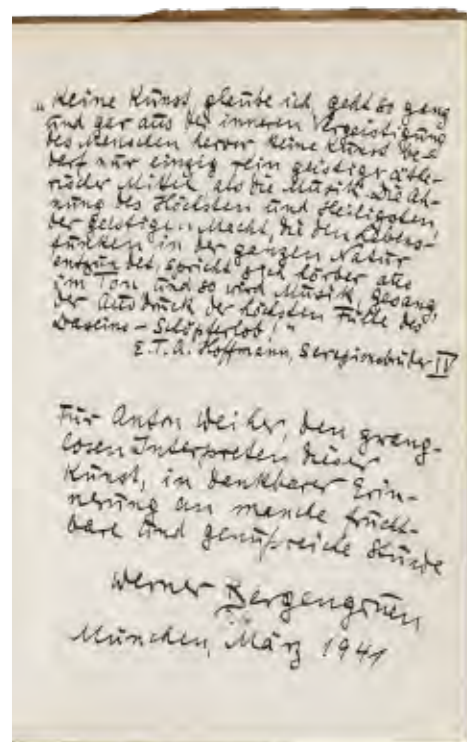 „Keine Kunst, glaube ich, geht so ganz
und gar aus der inneren Vergeistigung
des Menschen hervor keine Kunst be-
darf nur einzig rein geistiger äthe-
rischer Mittel, als die Musik. Die Ah-
nung des Höchsten und Heiligsten,
der geistigen Macht, die den Lebens-
funken in der ganzen Natur
entzündet, spricht sich hörbar aus
im Ton und so wird Musik, Gesang,
der Ausdruck der höchsten Fülle des
Daseins – Schöpferlob!"
E.T.A. Hoffmann, Serapionsbrüder IV
Für Anton Weiher, den
losen Interpreten dieser
Kunst, in dankbarer Erin-
nerung an manche frucht-
bare und genußreiche Stunde
Werner Bergengruen
München, März 1941